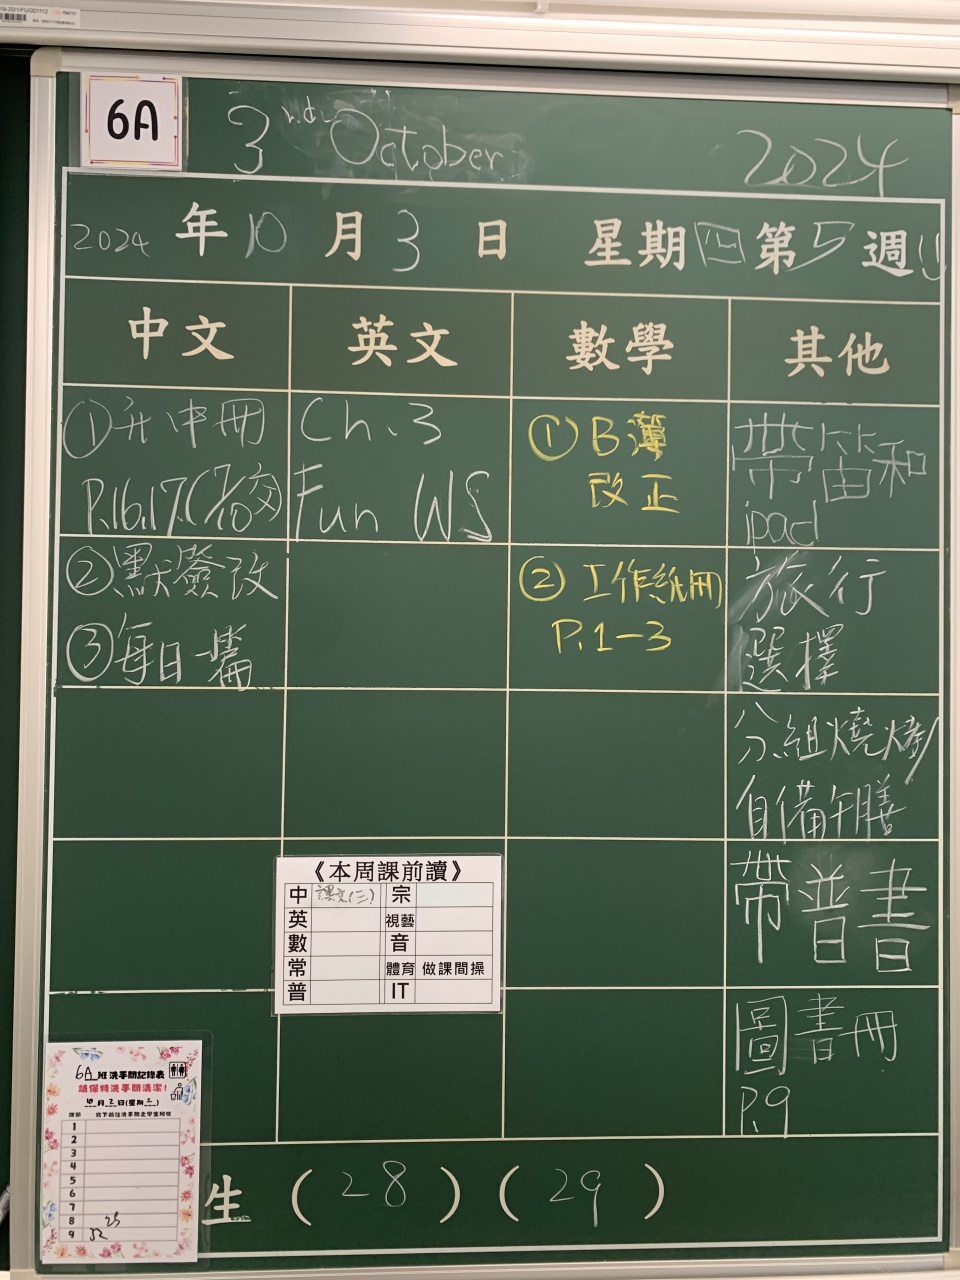 6A
3rd October 2024
2024年10月3日 星期四 第5週
中文
英文
數學
其他
①升中冊
P.16,17.(冇交)
②默簽改
③每日一篇
Ch.3
Fun WS
①B簿
改正
②工作紙冊
P.1-3
帶笛和
ipad
旅行
選擇
分組燒烤/
自備午膳
帶普書
圖書冊
P.9
《本周課前讀》
中 課文(三) 宗
英 視藝
數 音
常 體育 做課間操
普 IT
6A班洗手間記錄表
請保持洗手間清潔!
10月2日(星期三)
1
2
3
4
5
6
7
8 25
9 32
生 (28) (29)